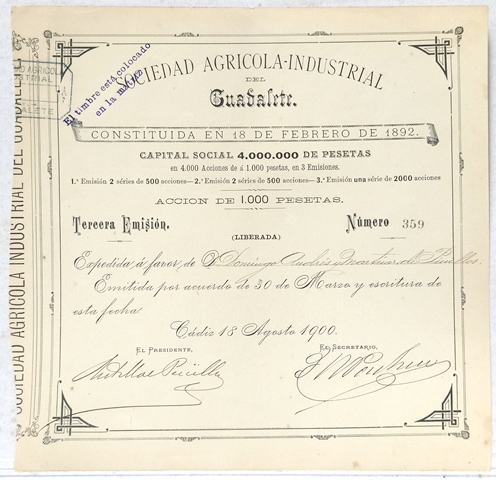 El timbre está colocado
en la matriz
SOCIEDAD AGRICOLA-INDUSTRIAL
DEL
Guadalete.
CONSTITUIDA EN 18 DE FEBRERO DE 1892.
CAPITAL SOCIAL 4.000.000 DE PESETAS
en 4.000 Acciones de á 1.000 pesetas, en 3 Emisiones.
1.ª Emisión 2 séries de 500 acciones—2.ª Emisión 2 séries de 500 acciones—3.ª Emisión una série de 2000 acciones
ACCION DE 1.000 PESETAS.
Tercera Emisión. Número 359
(LIBERADA)
Expedida á favor de D. Domingo Andrés
Emitida por acuerdo de 30 de Marzo y escritura de
esta fecha.
Cádiz 18 Agosto 1900.
EL PRESIDENTE, EL SECRETARIO,
SOCIEDAD AGRICOLA INDUSTRIAL DEL GUADALETE